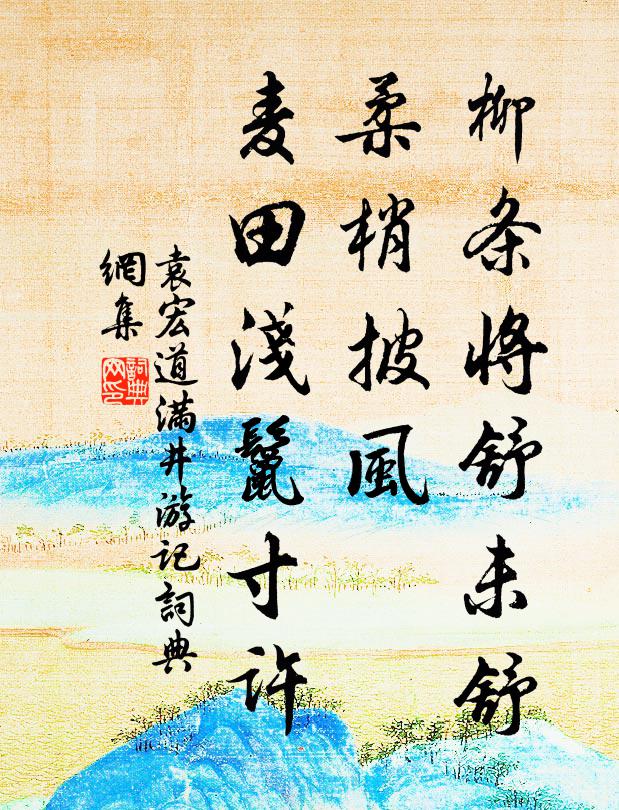 柳条将舒未舒
柔梢披風
麦田淺鬣寸许
袁宏道满井游记詞典
網集
詞典
网印